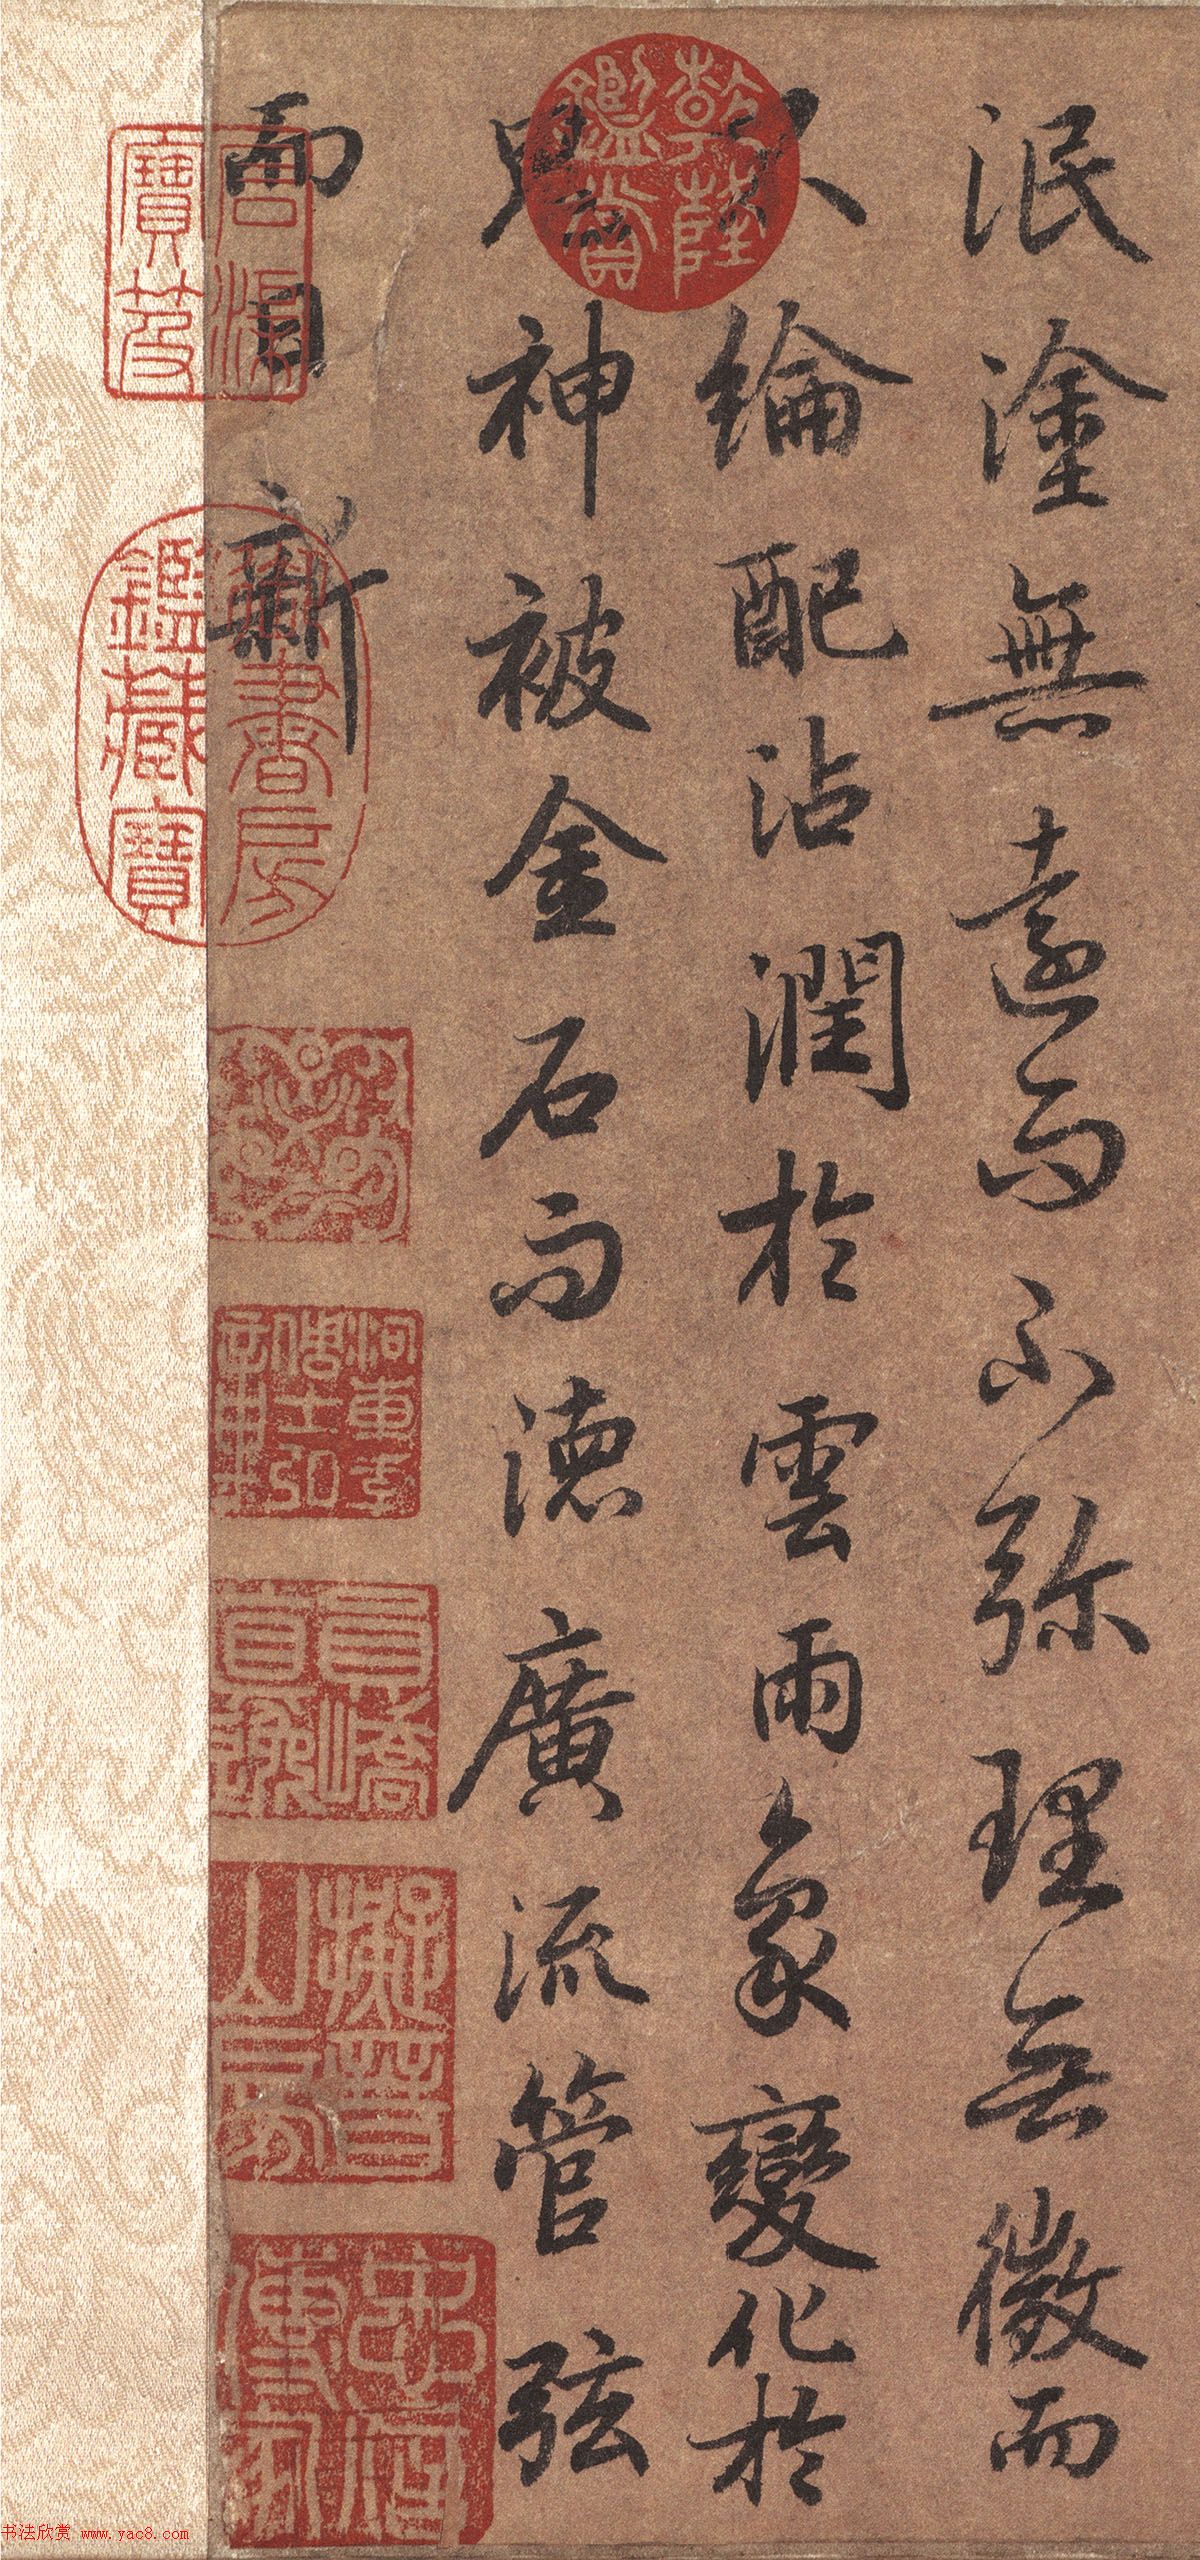 泯塗無遠而不弥理無微而
不綸配沾潤於雲雨象變化於
鬼神被金石而德廣流管弦
而日新
乾隆鑑賞
宣統
御書房
鑑藏寶
书法欣赏 www.yac8.com